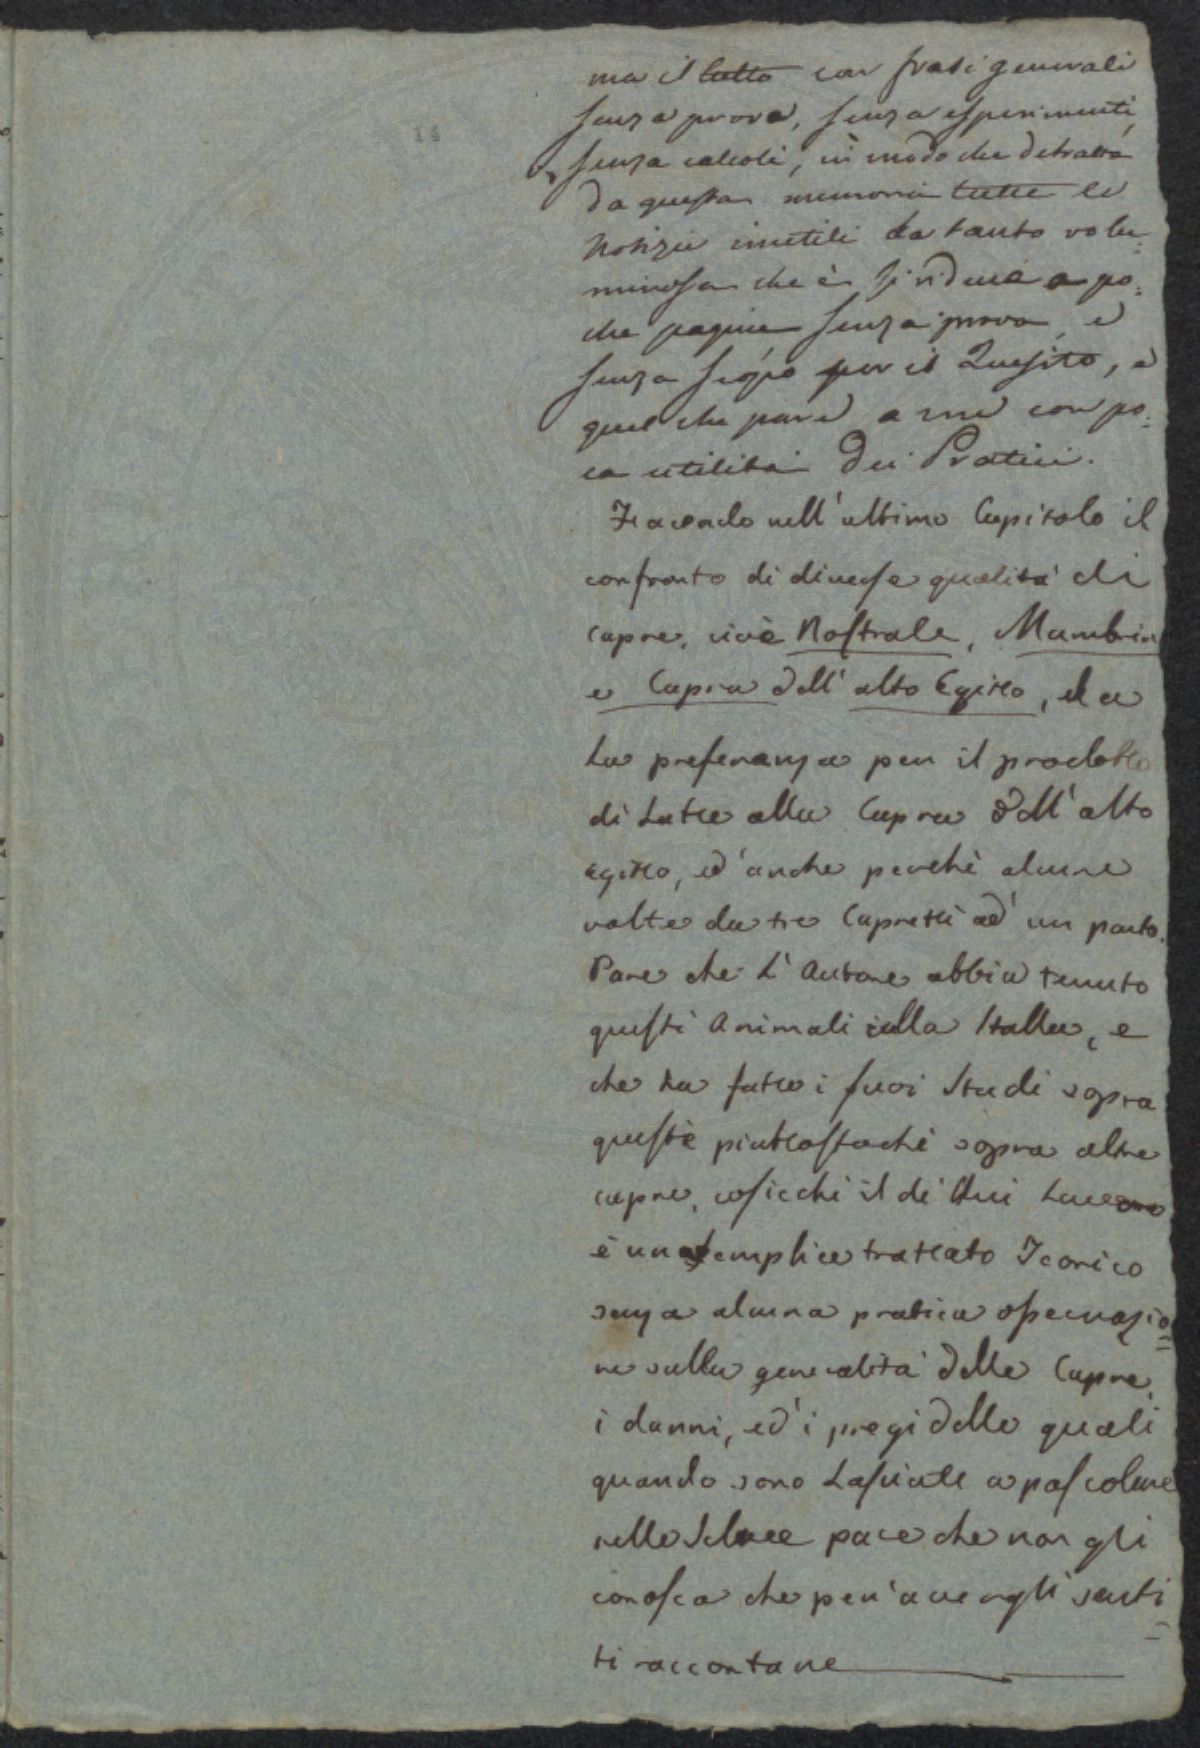 ma il tutto con frasi generali
senza prova, senza esperimenti,
senza calcoli, in modo che detratta
da questa memoria tutte le
Notizie inutili da tanto volu-
minosa che è si riduce a po=
che pagine senza prova, e
senza per il Quesito, e
quel che pare a me con po=
ca utilità dei Pratici.
Facendo nell'ultimo Capitolo il
confronto di diverse qualità di
capre, cioè Nostrale, Mambrin
e Capra dell'alto Egitto, da
La preferenza per il prodotto
di Latte alla Capra dell'alto
Egitto, ed'anche perchè alcune
volte da tre Capretti ad'un parto.
Pare che L'Autore abbia tenuto
questi Animali nella Stalla, e
che ha fatto i suoi Studi sopra
queste piuttostochè sopra altre
capre, cosicchè il di Lui Lavoro
è un semplice trattato Teorico
senza alcuna pratica osservazio=
ne sulla generalità delle Capre,
i danni, ed'i pregi delle quali
quando sono Lasciate a pascolare
nelle Selve pare che non gli
conosca che per'avergli senti=
ti raccontare